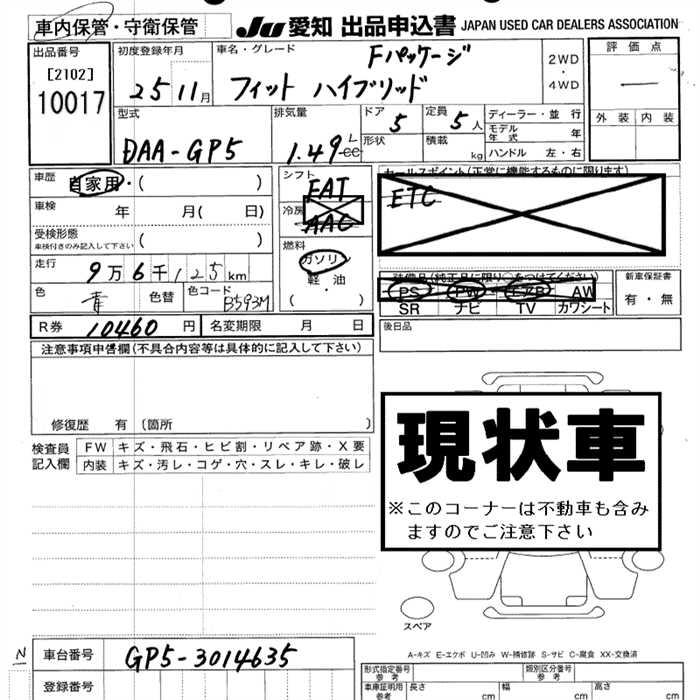 車内保管・守衛保管 JU 愛知 出品申込書 JAPAN USED CAR DEALERS ASSOCIATION
出品番号 初度登録年月 車名・グレード Fパッケージ 2WD ・ 4WD 評価点
[2102] 10017 25 11月 フィット ハイブリッド —
外装 内装
型式 排気量 ドア 5 定員 5人 ディーラー・並行
DAA-GP5 1.49 L cc 形状 積載 kg モデル年式 年
ハンドル 左・右
車歴 自家用・( ) シフト FAT セールスポイント(正常に機能するものに限ります)
車検 年 月( 日) 冷房 AAC ETC
受検形態 車検付きのみ記入して下さい ( ) 燃料 ガソリン 軽・油 ( )
走行 9万6千125km 装備品(純正品に限り○をつけてください) 新車保証書
色 青 色替 色コード B593M PS PW AW 有・無
SR ナビ TV カワシート
R券 10460円 名変期限 月 日 後日品
注意事項申告欄(不具合内容等は具体的に記入して下さい)
修復歴 有(箇所 )
現状車
※このコーナーは不動車も含みますのでご注意下さい
検査員記入欄 FW キズ・飛石・ヒビ割・リペア跡・X要
内装 キズ・汚レ・コゲ・穴・スレ・キレ・破レ
スペア
A-キズ E-エクボ U-凹み W-補修跡 S-サビ C-腐食 XX-交換済
N 車台番号 GP5-3014635 形式指定番号 参考 類別区分番号 参考
登録番号 車庫証明用 参考 長さ cm 幅 cm 高さ cm